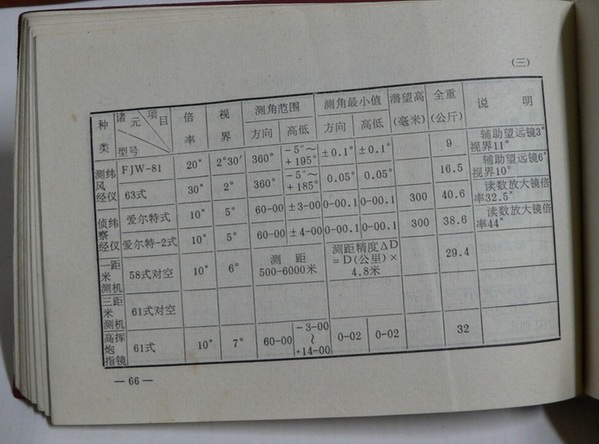 (三)
种类 诸元 项目 型号 倍率 视界 测角范围 方向 高低 测角最小值 方向 高低 潜望高(毫米) 全重(公斤) 说明
测风经纬仪 FJW-81 20° 2°30′ 360° -5°~+195° ±0.1° ±0.1° 9 辅助望远镜3°视界11°
63式 30° 2° 360° -5°~+185° 0.05° 0.05° 16.5 辅助望远镜6°视界10°
侦察经纬仪 爱尔特式 10° 5° 60-00 ±3-00 0-00.1 0-00.1 300 40.6 读数放大镜倍率32.5°
爱尔特-2式 10° 5° 60-00 ±4-00 0-00.1 0-00.1 300 38.6 读数放大镜倍率44°
一米测距机 58式对空 10° 6° 测距500-6000米 测距精度ΔD=D(公里)×4.8米 29.4
三米测距机 61式对空
高炮指挥镜 61式 10° 7° 60-00 -3-00~+14-00 0-02 0-02 32
— 66 —